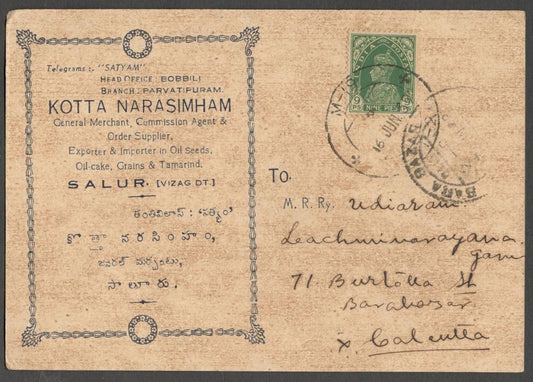 Telegrams :- "SATYAM"
HEAD OFFICE: BOBBILI
BRANCH: PARVATIPURAM.
KOTTA NARASIMHAM
General Merchant, Commission Agent &
Order Supplier,
Exporter & Importer in Oil Seeds,
Oil-cake, Grains & Tamarind.
SALUR. [VIZAG DT.]
తంతివిలాస్: 'సత్యం'
కొత్తా నరసింహం,
జనరల్ మర్చంటు,
సాలూరు.
INDIA POSTAGE
9 PS NINE PIES 9 PS
16 JUN
BARA BAZAR
To
M. R. Ry. Udiaram
Leachminarayana
garu
71 Burtolla St
Barabazar
x Calcutta